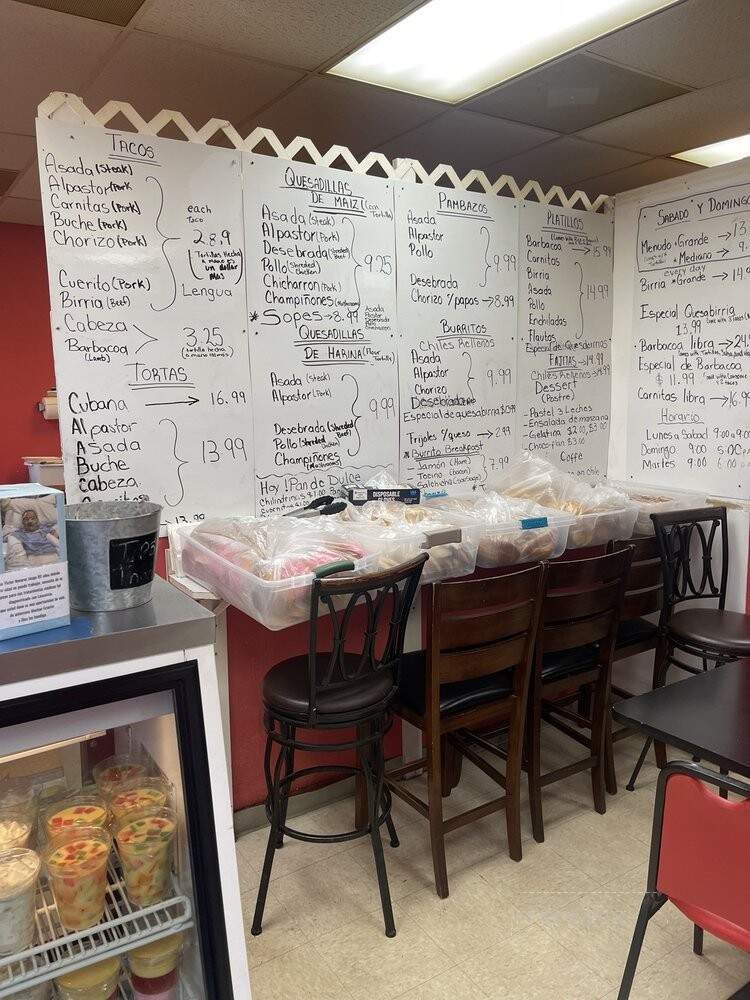 TACOS
Asada (Steak)
Alpastor (Pork
Carnitas (Pork)
Buche (Pork)
Chorizo (Pork)
each
Taco
2.89
(Tortillas Hecha
a mano es
un dollar
mas)
Lengua
Cuerito (Pork)
Birria (Beef)
Cabeza
Barbacoa
(Lamb)
3.25
TORTAS
Cubana → 16.99
Al pastor
Asada
Buche
Cabeza
13.99
13.99
QUESADILLAS
DE MAIZ (Corn Tortilla)
Asada (Steak)
Alpastor (Pork)
Desebrada (Shreded Beef)
Pollo (Shreded Chicken)
Chicharron (Pork)
Champiñones (Mushrooms)
9.25
*Sopes → 8.99
Asada
Pastor
Desebrada
QUESADILLAS
DE HARINA (Flour Tortilla)
Asada (Steak)
Alpastor (Pork)
Desebrada (Shreded Beef)
Pollo (Shreded Chicken)
Champiñones
(Mushrooms)
9.99
Hoy! Pan de Dulce
PAMBAZOS
Asada
Alpastor
Pollo
Desebrada
9.99
Chorizo y/papas → 8.99
BURRITOS
Chiles Rellenos
Asada
Alpastor
Chorizo
Desebrada
9.99
Especial de quesabirria $10.99
Frijoles y/queso → 2.99
*Burrito Breakfast
- Jamón (Ham)
- Tocino (bacon)
- Salchicha (Sausage)
7.99
DISPOSABLE
GLOVES
PLATILLOS
Barbacoa → 15.99
Carnitas
Birria
Asada
Pollo
Enchiladas
Flautas
14.99
Especial de Quesabirrias
FAJITAS → 14.99
Chiles Rellenos → 14.99
Dessert
(Postre)
- Pastel 3 Leches
- Ensalada de manzana
- Gelatina $2.00, $3.00
- Choco-flan $3.00
Coffe
SABADO Y DOMINGO
Menudo • Grande → 13.
• Mediano → 9.
every day
Birria • Grande → 14.
Especial Quesabirria
13.99
• Barbacoa libra → 24.
Especial de Barbacoa
$11.99
Carnitas libra → 16.99
Horario
Lunes a Sabad 9:00 a 9:00
Domingo 9:00 5:00 pm
Martes 9:00 6:00